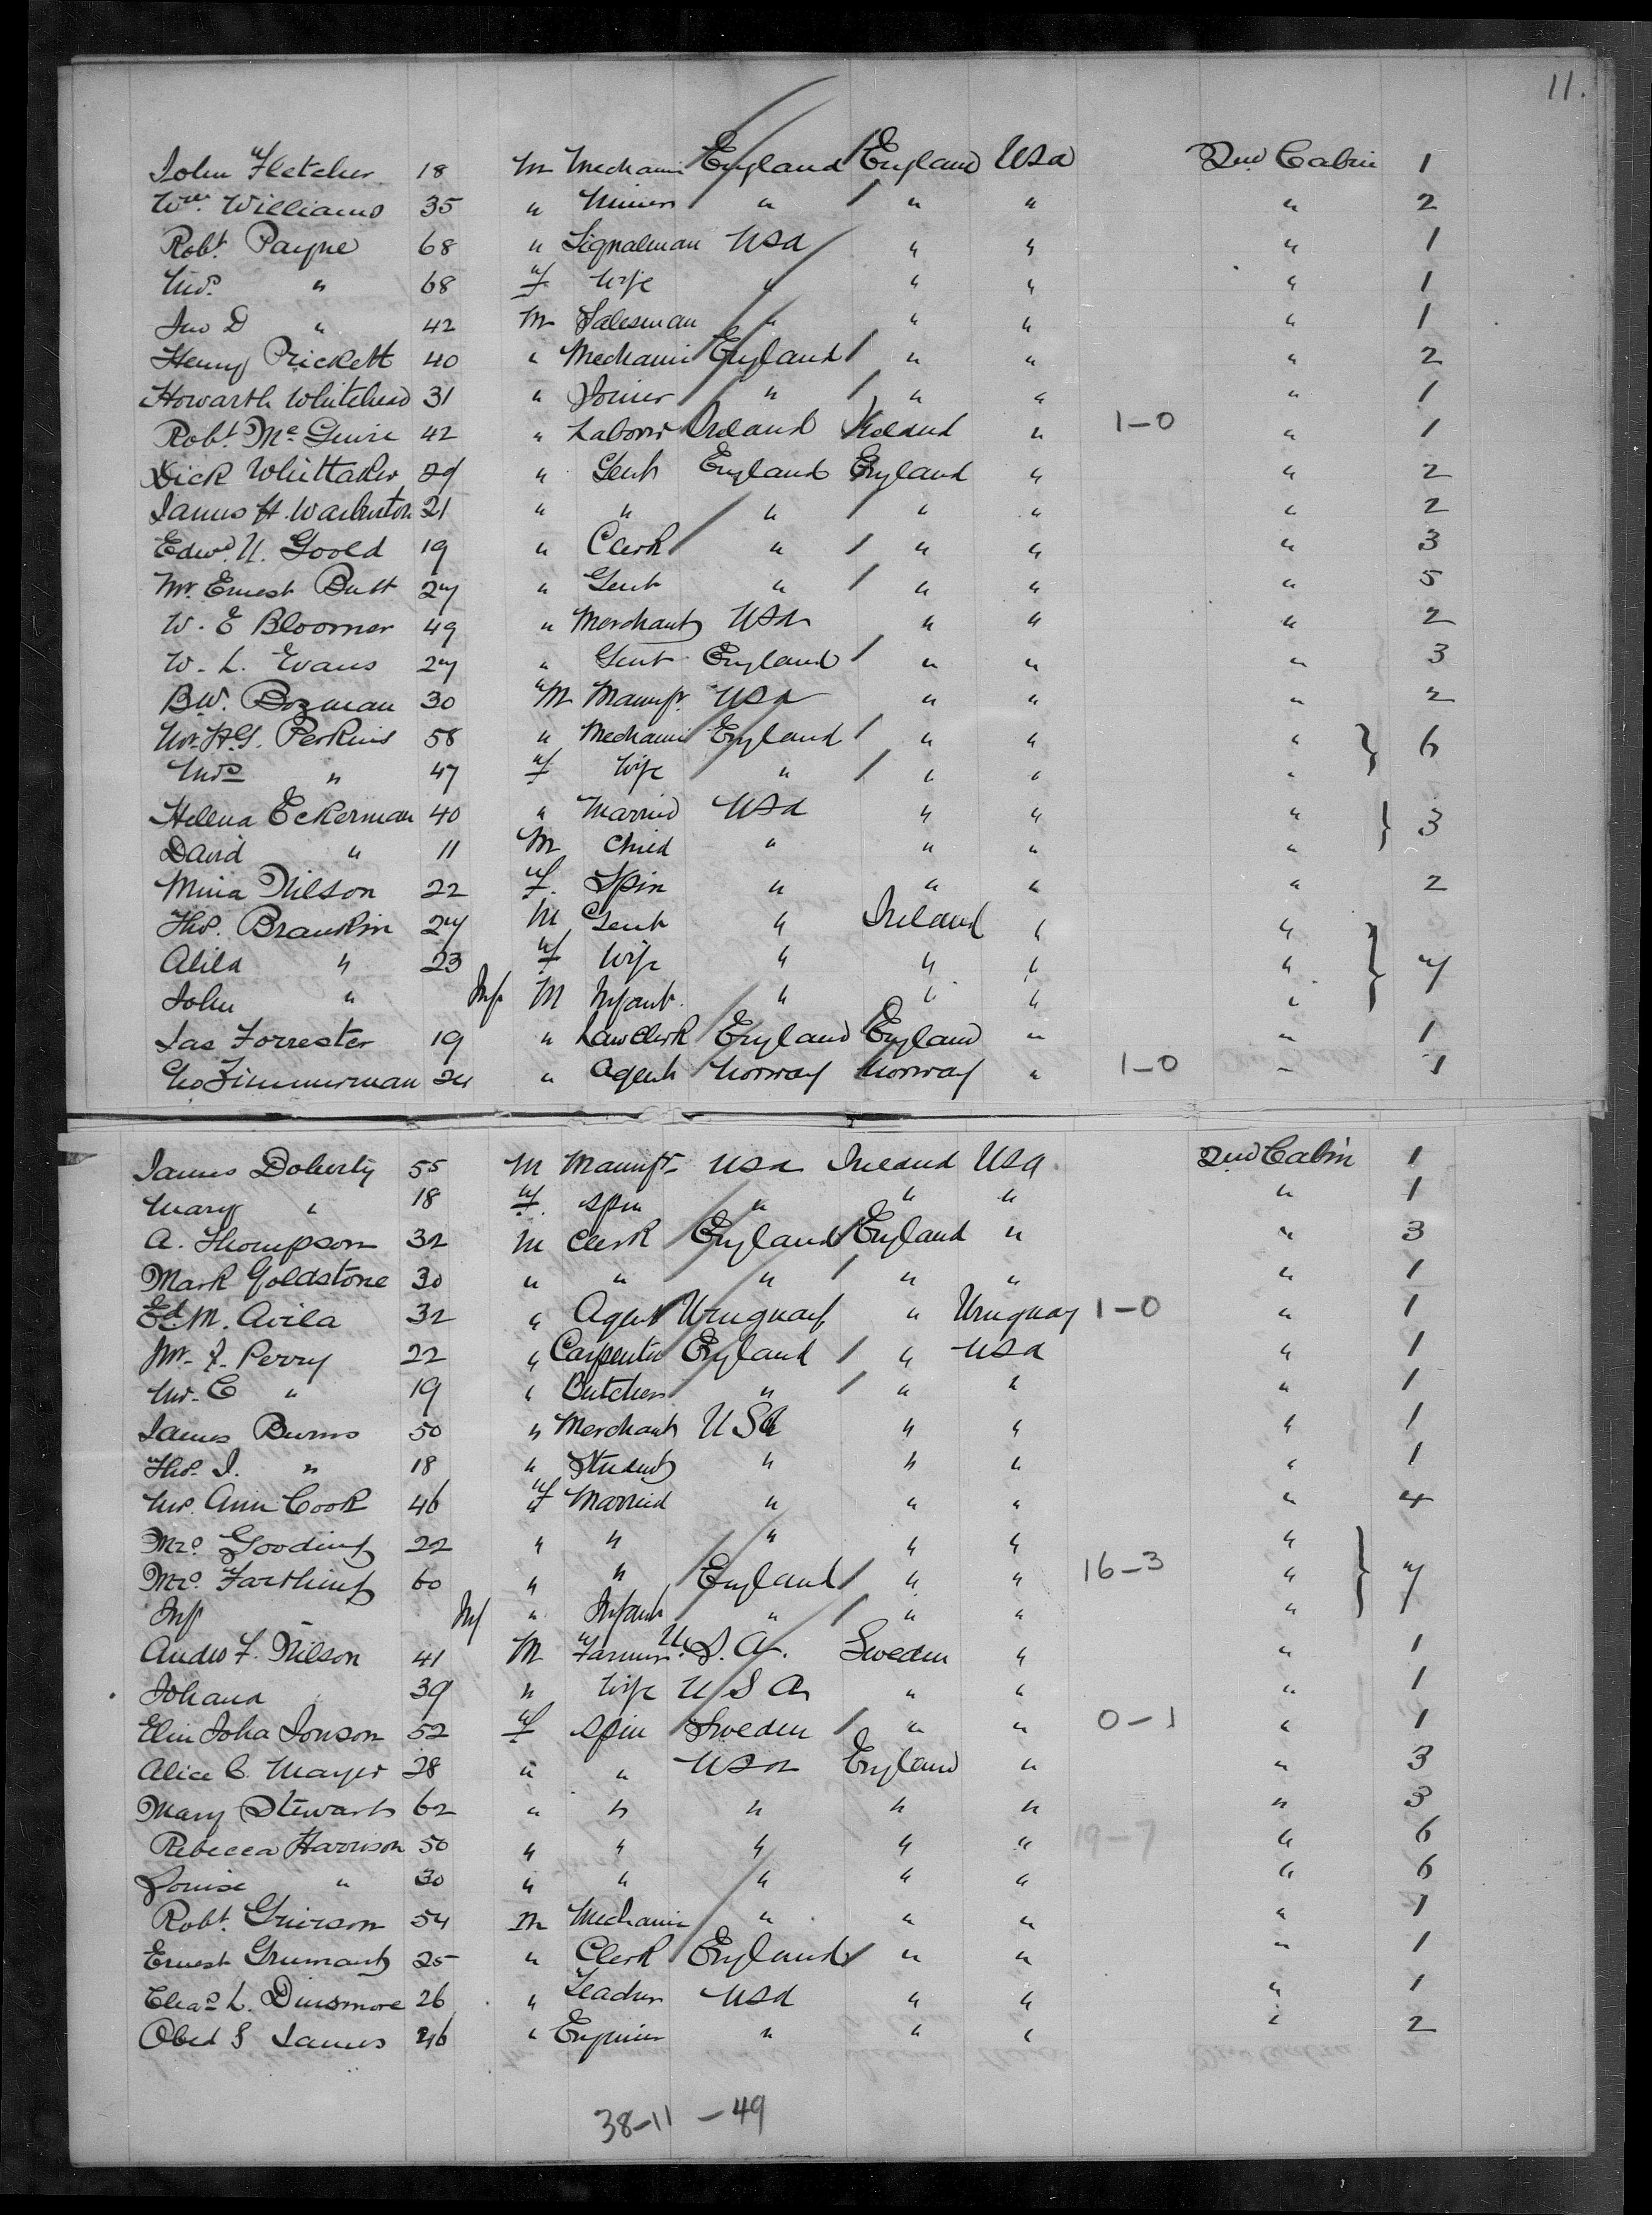 11.
John Fletcher 18 M Mechanic England England USA 2nd Cabin 1
Wm. Williams 35 " Miner " " " " 2
Robt. Payne 68 " Signalman USA " " " 1
Mrs. " 68 f Wife " " " " 1
Jno D " 42 M Salesman " " " " 1
Henry Prickett 40 " Mechanic England " " " 2
Howarth Whitehead 31 " Joiner " " " " 1
Robt. McGuire 42 " Laborer Ireland Ireland " 1-0 " 1
Dick Whittaker 29 " Gent England England " " 2
James H. Warburton 21 " " " " " " 2
Edwd. U. Goold 19 " Clerk " " " " 3
Mr. Ernest Butt 27 " Gent " " " " 5
W. E Bloomer 49 " Merchant USA " " " 2
W. L. Evans 27 " Gent England " " " 3
B.W. Bozman 30 M Manufr. USA " " " 2
Mr. H.G. Perkins 58 " Mechanic England " " " } 6
Mrs " 47 f Wife " " " "
Helena Eckerman 40 " Married USA " " " } 3
David " 11 M Child " " " "
Mina Nilson 22 f. Spin " " " " 2
Thos. Brankin 27 M Gent " Ireland " " } 7
Alila " 23 f Wife " " " "
John " Inf M Infant " " " "
Jas Forrester 19 " Law Clerk England England " " 1
Geo Zimmerman 24 " Agent Norway Norway " 1-0 " 1
James Doherty 55 M Manufr USA Ireland USA 2nd Cabin 1
Mary " 18 f. Spin " " " " 1
A. Thompson 32 M Clerk England England " " 3
Mark Goldstone 30 " " " " " " 1
Ed. M. Avila 32 " Agent Uruguay " Uruguay 1-0 " 1
Mr. J. Perry 22 " Carpenter England " USA " 1
Mr. C " 19 " Butcher " " " " 1
James Burns 50 " Merchant USA " " " 1
Thos. J. " 18 " Student " " " " 1
Mrs. Ann Cook 46 f Married " " " " 4
Mrs. Gooding 22 " " " " " " } 7
Mrs. Farthing 60 " " England " " 16-3 "
Inf Inf " Infant " " " "
Andw F. Nilson 41 M Farmer U.S.A. Sweden " " 1
Johana 39 " Wife USA " " " 1
Elin Joha Jonson 52 f Spin Sweden " " 0-1 " 1
Alice C. Mayer 28 " " USA England " " 3
Mary Stewart 62 " " " " " " 3
Rebecca Harrison 50 " " " " " 19-7 " 6
Louise " 30 " " " " " " 6
Robt. Grierson 54 M Mechanic " " " " 1
Ernest Grumant 25 " Clerk England " " " 1
Chas L. Dinsmore 26 " Teacher USA " " " 1
Obed S James 46 " Engineer " " " " 2
38-11 - 49